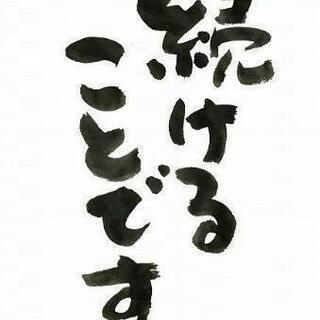 続ける
ことです